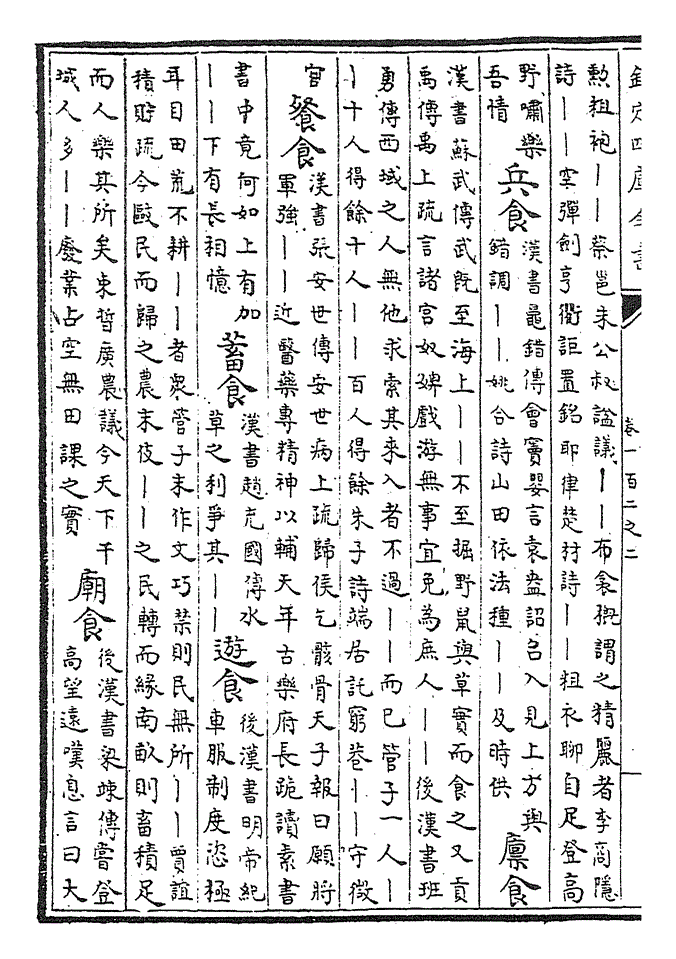 欽定四庫全書
卷一百二之二
勲粗袍丨丨蔡邕朱公叔諡議丨丨布衾槪謂之精麗者李商隱
詩丨丨空彈劍亨衢詎置銘耶律楚材詩丨丨粗衣聊自足登高
野嘯樂
吾情
兵食
漢書鼂錯傳會竇嬰言袁盎詔召入見上方與
錯調丨丨姚合詩山田依法種丨丨及時供
廪食
漢書蘇武傳武既至海上丨丨不至掘野鼠與草實而食之又貢
禹傳禹上疏言諸宮奴婢戲游無事宜免為庶人丨丨後漢書班
勇傳西域之人無他求索其來入者不過丨丨而已管子一人丨
丨十人得餘十人丨丨百人得餘朱子詩端居託窮巷丨丨守微
官
餐食
漢書張安世傳安世病上疏歸侯乞骸骨天子報曰願將
軍強丨丨近醫藥專精神以輔天年古樂府長跪讀素書
書中竟何如上有加
丨丨下有長相憶
蓄食
漢書趙充國傳水
草之利爭其丨丨
遊食
後漢書明帝紀
車服制度恣極
耳目田荒不耕丨丨者衆管子末作文巧禁則民無所丨丨賈誼
積貯疏今毆民而歸之農末伎丨丨之民轉而緣南畝則畜積足
而人樂其所矣束晳廣農議今天下千
域人多丨丨廢業占空無田課之實
廟食
後漢書梁竦傳嘗登
高望遠嘆息言曰大